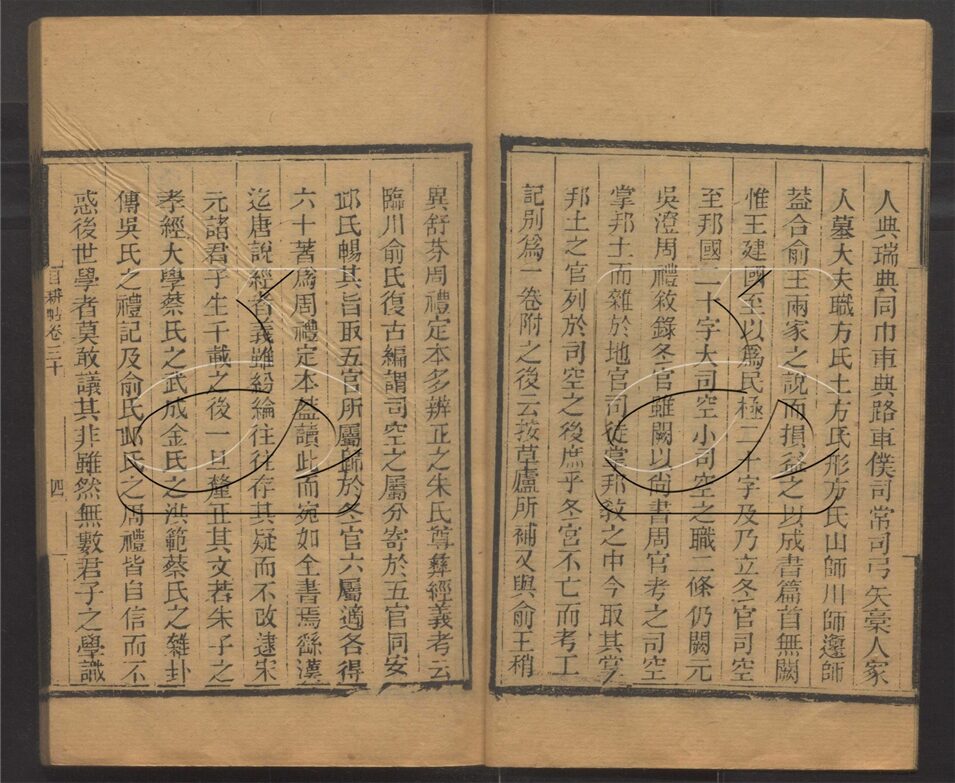 人典瑞典同巾車典路車僕司常司弓矢槀人家
人墓大夫職方氏土方氏形方氏山師川師邍師
葢合俞王兩家之說而損益之以成書篇首無闕
惟王建國至以爲民極二十字及乃立冬官司空
至邦國二十字大司空小司空之職二條仍闕元
吳澄周禮敘錄冬官雖闕以尙書周官考之司空
掌邦土而雜於地官司徒掌邦敎之中今取其掌
邦土之官列於司空之後庶乎冬宮不亡而考工
記別爲一卷附之後云按草廬所補又與俞王稍
異舒芬周禮定本多辨正之朱氏尊彝經義考云
臨川俞氏復古編謂司空之屬分寄於五官同安
邱氏暢其旨取五官所屬歸於冬官六屬適各得
六十著爲周禮定本葢讀此而宛如全書焉繇漢
迄唐說經者義雖紛綸往往存其疑而不改逮宋
元諸君子生千載之後一旦釐正其文若朱子之
孝經大學蔡氏之武成金氏之洪範蔡氏之雜卦
傳吳氏之禮記及俞氏邱氏之周禮皆自信而不
惑後世學者莫敢議其非雖然無數君子之學識
目耕帖卷三十
四